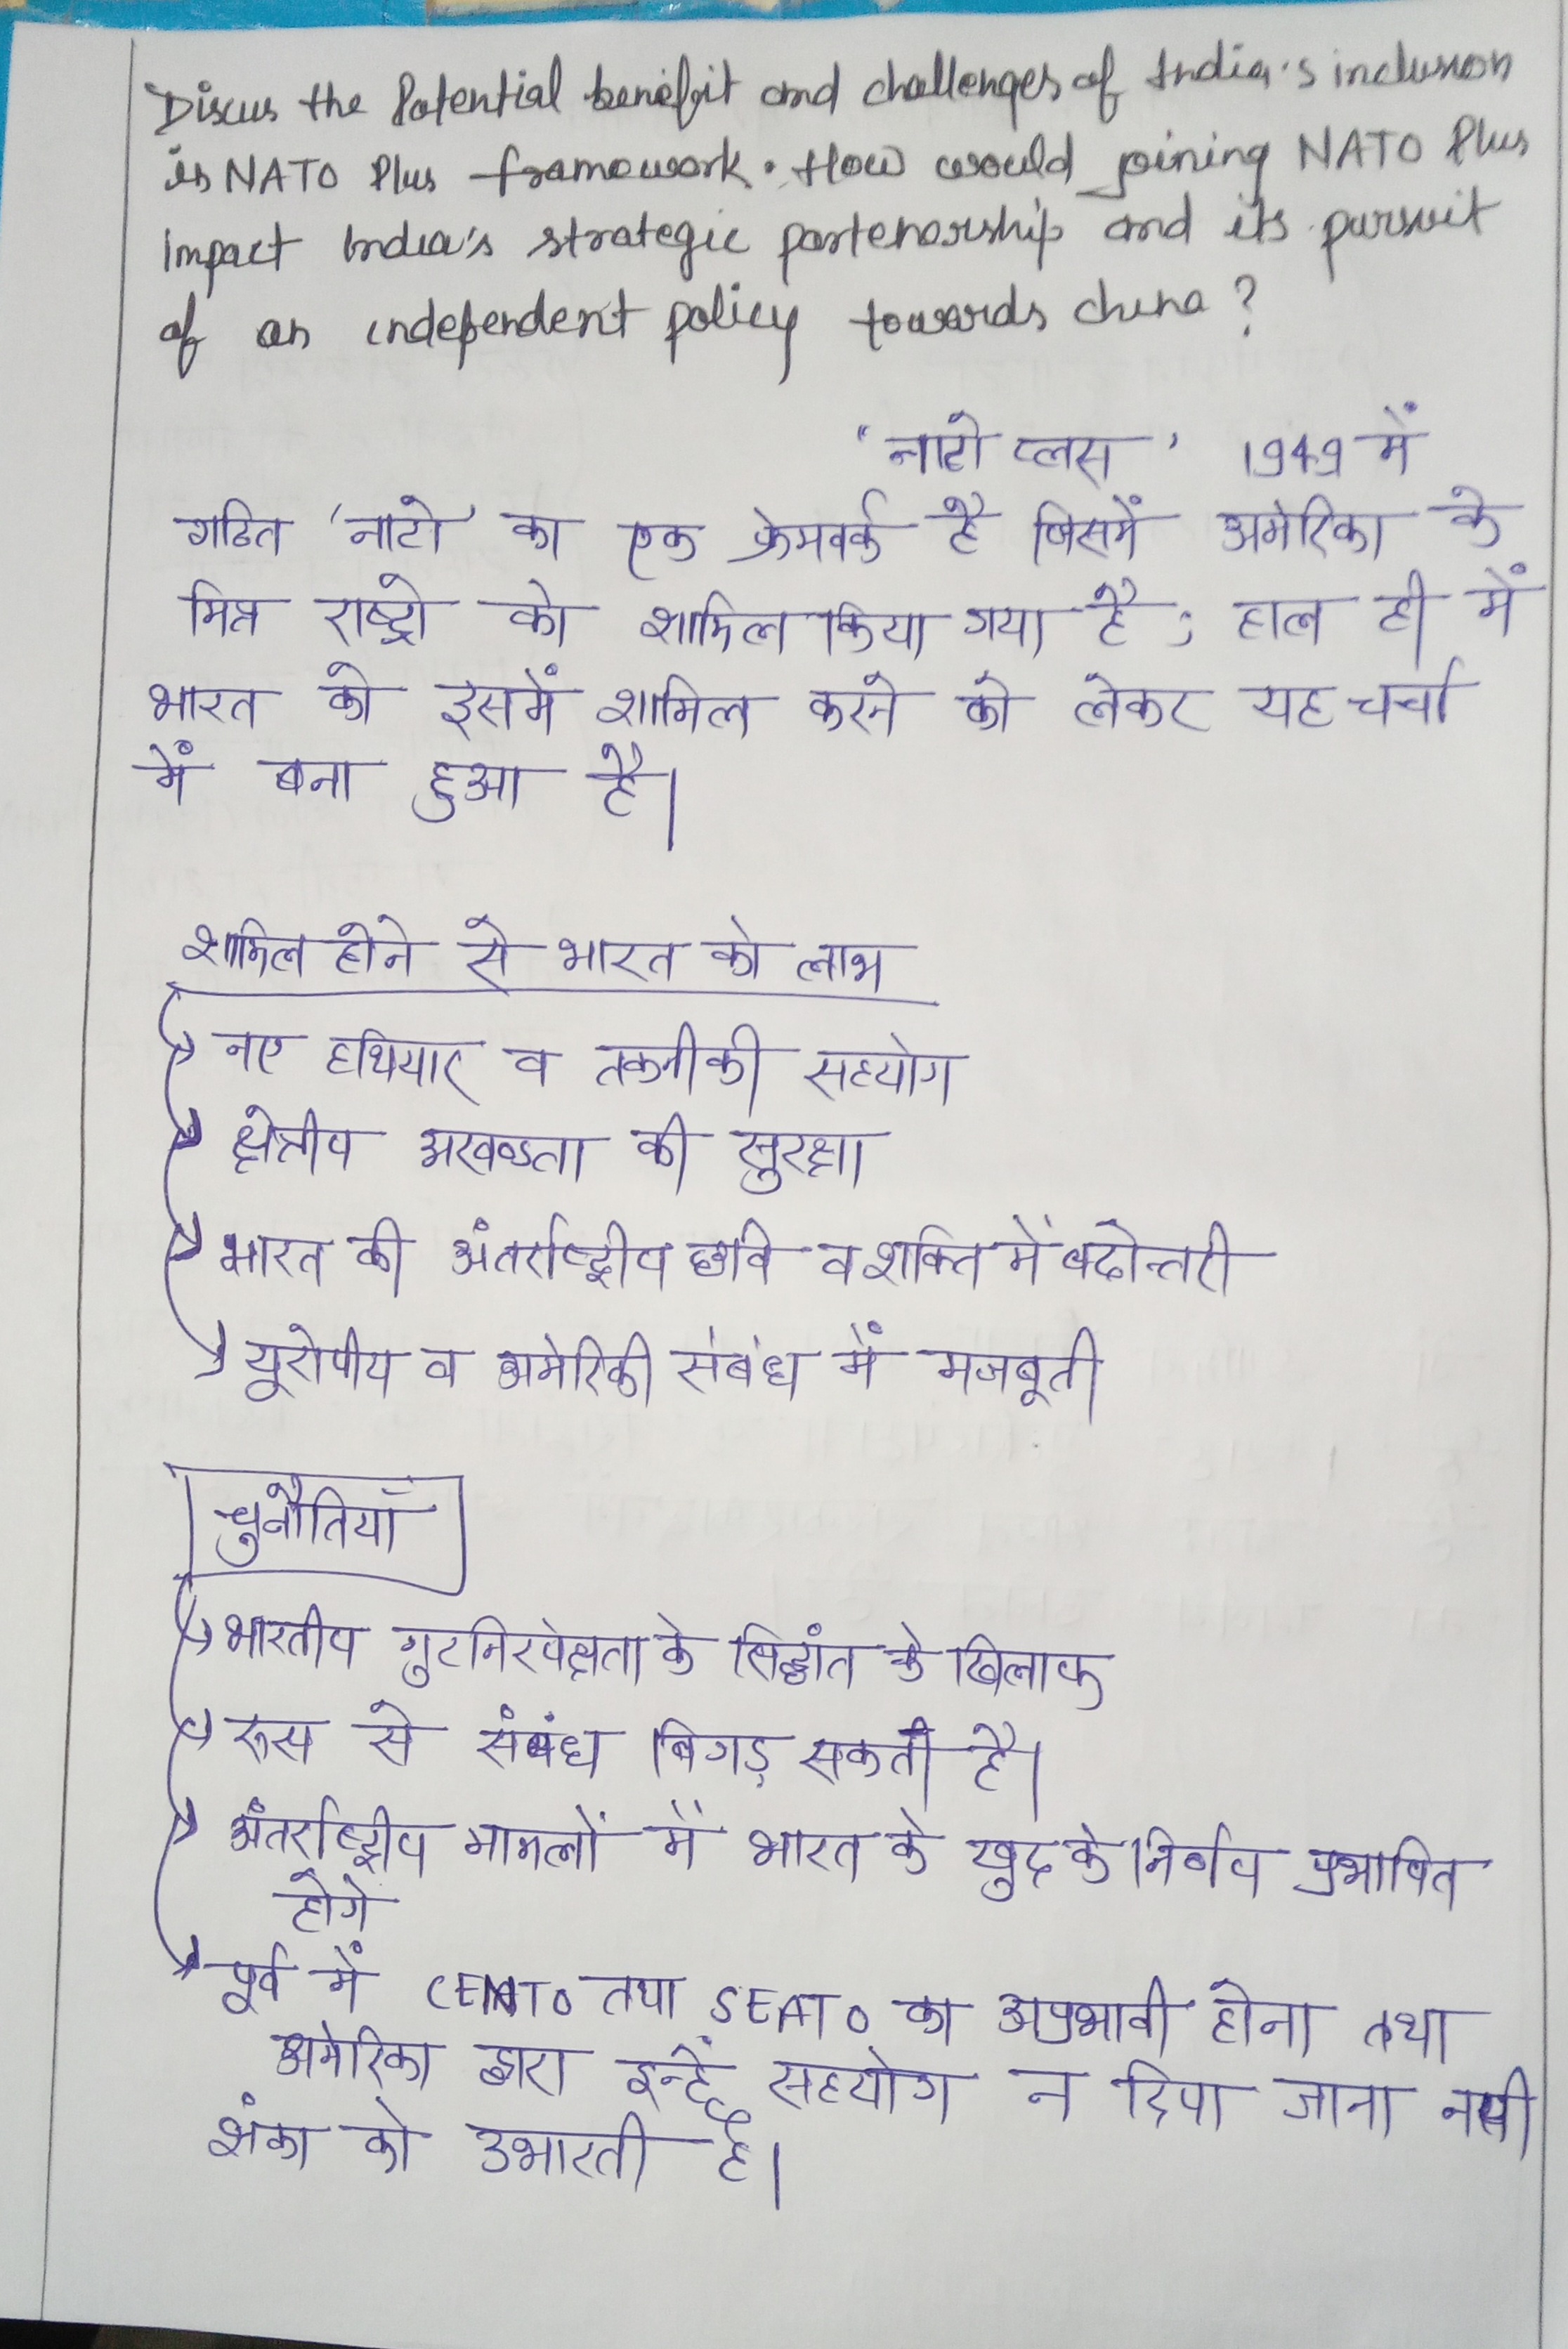 Discus the Potential benefit and challenges of India's inclusion
is NATO Plus framework. How would joining NATO Plus
impact India's strategic partenorship and its pursuit
of an independent policy towards china?
"नाटो प्लस' 1949 में
गठित 'नाटो' का एक फ्रेमवर्क है जिसमें अमेरिका के
मित्र राष्ट्रो को शामिल किया गया है; हाल ही में
भारत को इसमें शामिल करने को लेकर यह चर्चा
में बना हुआ है।
शामिल होने से भारत को लाभ
नए हथियार व तकनीकी सहयोग
क्षेत्रीय अखण्डता की सुरक्षा
भारत की अंतर्राष्ट्रीय छवि व शक्ति में बढोत्तरी
यूरोपीय व अमेरिकी संबंध में मजबूती
चुनौतियाँ
भारतीय गुटनिरपेक्षता के सिद्धांत के खिलाफ
रूस से संबंध बिगड़ सकती है।
अंतर्राष्ट्रीय मामलों में भारत के खुद के निर्णय प्रभावित
होगे
पूर्व में CENTO तथा SEATO का अप्रभावी होना तथा
अमेरिका द्वारा इन्हें सहयोग न दिया जाना नयी
शंका को उभारती है।